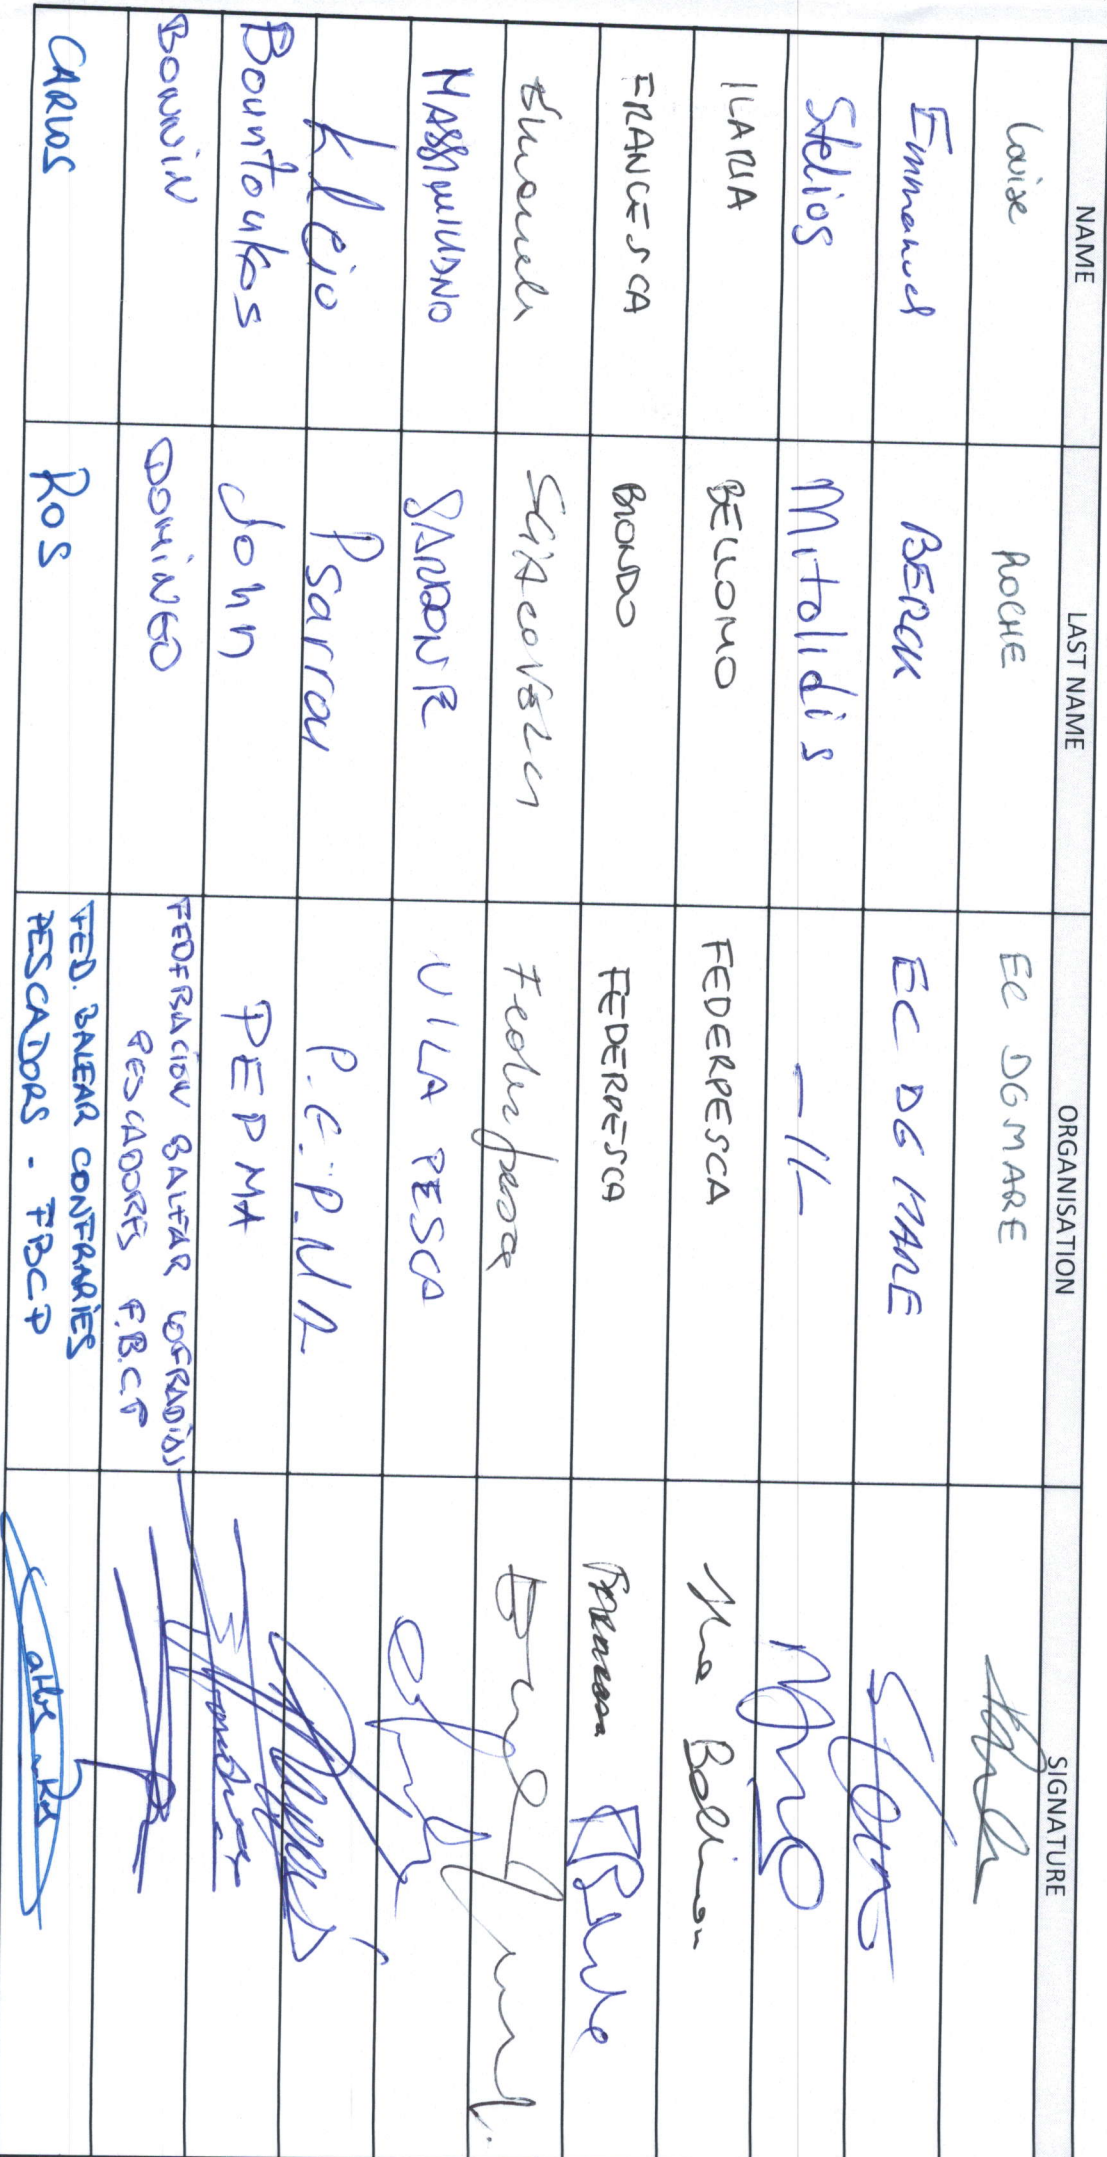 NAME LAST NAME ORGANISATION SIGNATURE
Louise ROCHE EC DGMARE
Emmanuel BERCK EC DG MARE
Stelios Mitolidis -//-
ILARIA BELLOMO FEDERPESCA Ilaria Bellomo
FRANCESCA BIONDO FEDERPESCA Francesca
Emanuela SCIACOVELLI Federpesca
MASSIMILIANO SARDONE UILA PESCA
Kleio Psarrou P.E.P.M.A
Bountoukos John PEPMA
BONNIN DOMINGO FEDERACION BALEAR COFRADIAS
PESCADORES F.B.C.P
CARLOS ROS FED. BALEAR CONFRARIES
PESCADORS - FBCP